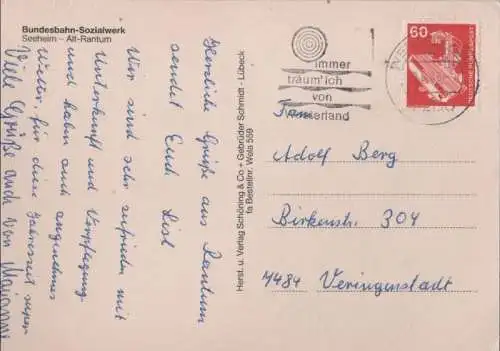 Bundesbahn-Sozialwerk
Seeheim – Alt-Rantum
Herzliche Grüße aus Rantum
sendet Euch Lisl
Wir sind sehr zufrieden mit
Unterkunft und Verpflegung
und haben auch angenehmes
Wetter, für diese Jahreszeit super
Viele Grüße auch von Marianne
Herst. u. Verlag Schöning & Co + Gebrüder Schmidt - Lübeck
fa Bestellnr. Wela 559
immer
träum' ich
von
Westerland
60
DEUTSCHE BUNDESPOST
Adolf Berg
Birkenstr. 304
7484 Veringenstadt